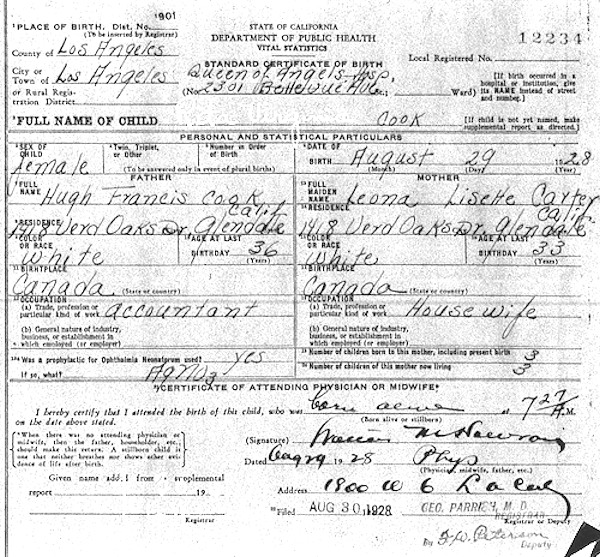 1901
¹PLACE OF BIRTH. Dist. No.
(To be inserted by Registrar)
STATE OF CALIFORNIA
DEPARTMENT OF PUBLIC HEALTH
VITAL STATISTICS
STANDARD CERTIFICATE OF BIRTH
12234
Local Registered No.
County of Los Angeles
City or Town of Los Angeles
or Rural Registration District
Queen of Angels Hsp.
(No. 2301 Bellevue Ave. Ward)
[If birth occurred in a hospital or institution, give its NAME instead of street and number.]
²FULL NAME OF CHILD Cook
[If child is not yet named, make supplemental report as directed.]
PERSONAL AND STATISTICAL PARTICULARS
SEX OF CHILD female
Twin, Triplet, or Other
Number in Order of Birth
(To be answered only in event of plural births)
DATE OF BIRTH August 29 1928
(Month) (Day) (Year)
FATHER
FULL NAME Hugh Francis Cook
RESIDENCE 1418 Verd Oaks Dr. Glendale Calif
COLOR OR RACE White
AGE AT LAST BIRTHDAY 36 (Years)
BIRTHPLACE Canada
(State or country)
OCCUPATION
(a) Trade, profession or particular kind of work accountant
(b) General nature of industry, business, or establishment in which employed (or employer)
MOTHER
FULL MAIDEN NAME Leona Lisette Carter
RESIDENCE 1418 Verd Oaks Dr. Glendale Calif
COLOR OR RACE White
AGE AT LAST BIRTHDAY 33 (Years)
BIRTHPLACE Canada
(State or country)
OCCUPATION
(a) Trade, profession or particular kind of work Housewife
(b) General nature of industry, business, or establishment in which employed (or employer)
Was a prophylactic for Ophthalmia Neonatorum used? yes
If so, what? AgNO3
Number of children born to this mother, including present birth 3
Number of children of this mother now living 3
CERTIFICATE OF ATTENDING PHYSICIAN OR MIDWIFE*
I hereby certify that I attended the birth of this child, who was born alive at 7 27 A.M.
on the date above stated. (Born alive or stillborn)
*When there was no attending physician or midwife, then the father, householder, etc., should make this return. A stillborn child is one that neither breathes nor shows other evidence of life after birth.
(Signature)
Dated Aug 29 1928 Phys
(Physician, midwife, father, etc.)
Given name added from supplemental
report 19
Registrar
Address 1800 W 6 L a Cal
Filed AUG 30 1928 GEO. PARRISH, M. D.
REGISTRAR
Registrar or Deputy
By Peterson
Deputy